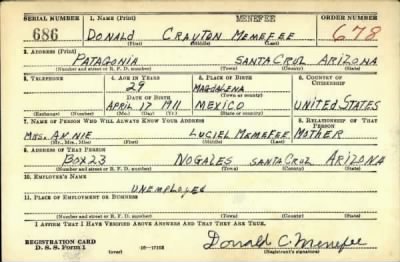 SERIAL NUMBER 1. NAME (Print) MENEFEE ORDER NUMBER
686 DONALD CRAYTON MEMEFEE 678
(First) (Middle) (Last)
2. ADDRESS (Print)
PATAGONIA SANTA CRUZ ARIZONA
(Number and street or R. F. D. number) (Town) (County) (State)
3. TELEPHONE 4. AGE IN YEARS 5. PLACE OF BIRTH 6. COUNTRY OF CITIZENSHIP
29 MAGDALENA
DATE OF BIRTH (Town or county)
APRIL 17 1911 MEXICO UNITED STATES
(Exchange) (Number) (Mo.) (Day) (Yr.) (State or country)
7. NAME OF PERSON WHO WILL ALWAYS KNOW YOUR ADDRESS 8. RELATIONSHIP OF THAT PERSON
MRS. ANNIE LUCIEL MEMEFEE MOTHER
(Mr., Mrs., Miss) (First) (Middle) (Last)
9. ADDRESS OF THAT PERSON
BOX 23 NOGALES SANTA CRUZ ARIZONA
(Number and street or R. F. D. number) (Town) (County) (State)
10. EMPLOYER'S NAME
UNEMPLOYED
11. PLACE OF EMPLOYMENT OR BUSINESS
(Number and street or R. F. D. number) (Town) (County) (State)
I AFFIRM THAT I HAVE VERIFIED ABOVE ANSWERS AND THAT THEY ARE TRUE.
REGISTRATION CARD
D. S. S. Form 1 (over) Donald C. Menefee
(Registrant's signature)